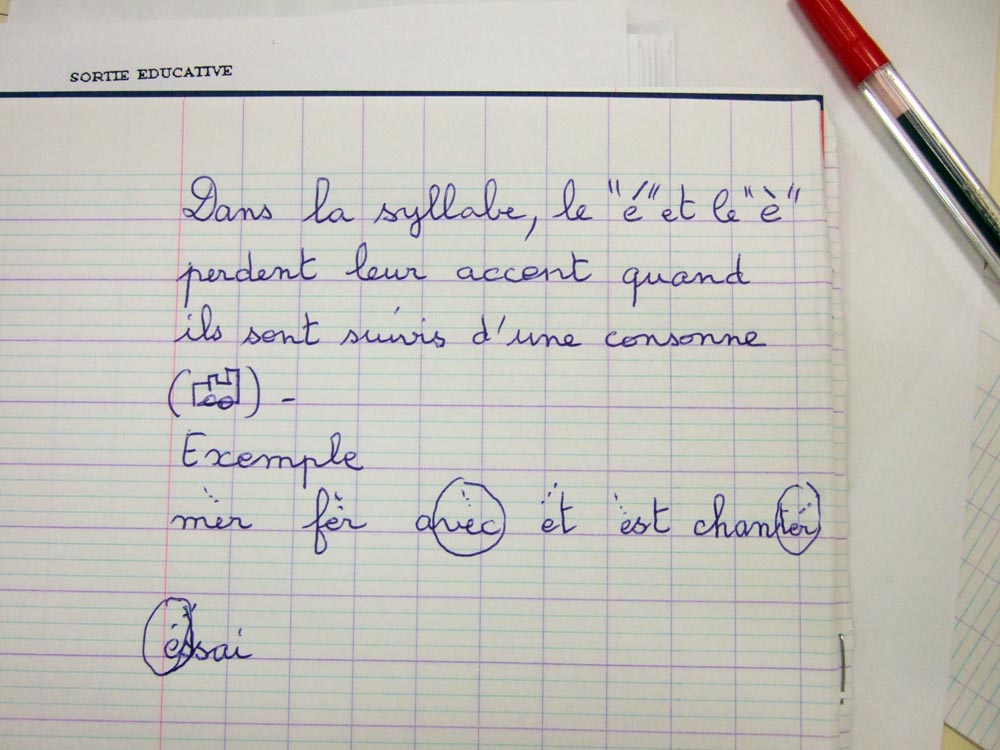 SORTIE EDUCATIVE
Dans la syllabe, le "é" et le "è"
perdent leur accent quand
ils sont suivis d'une consonne
( ) -
Exemple
mèr fèr avèc ét èst chantér
éssai